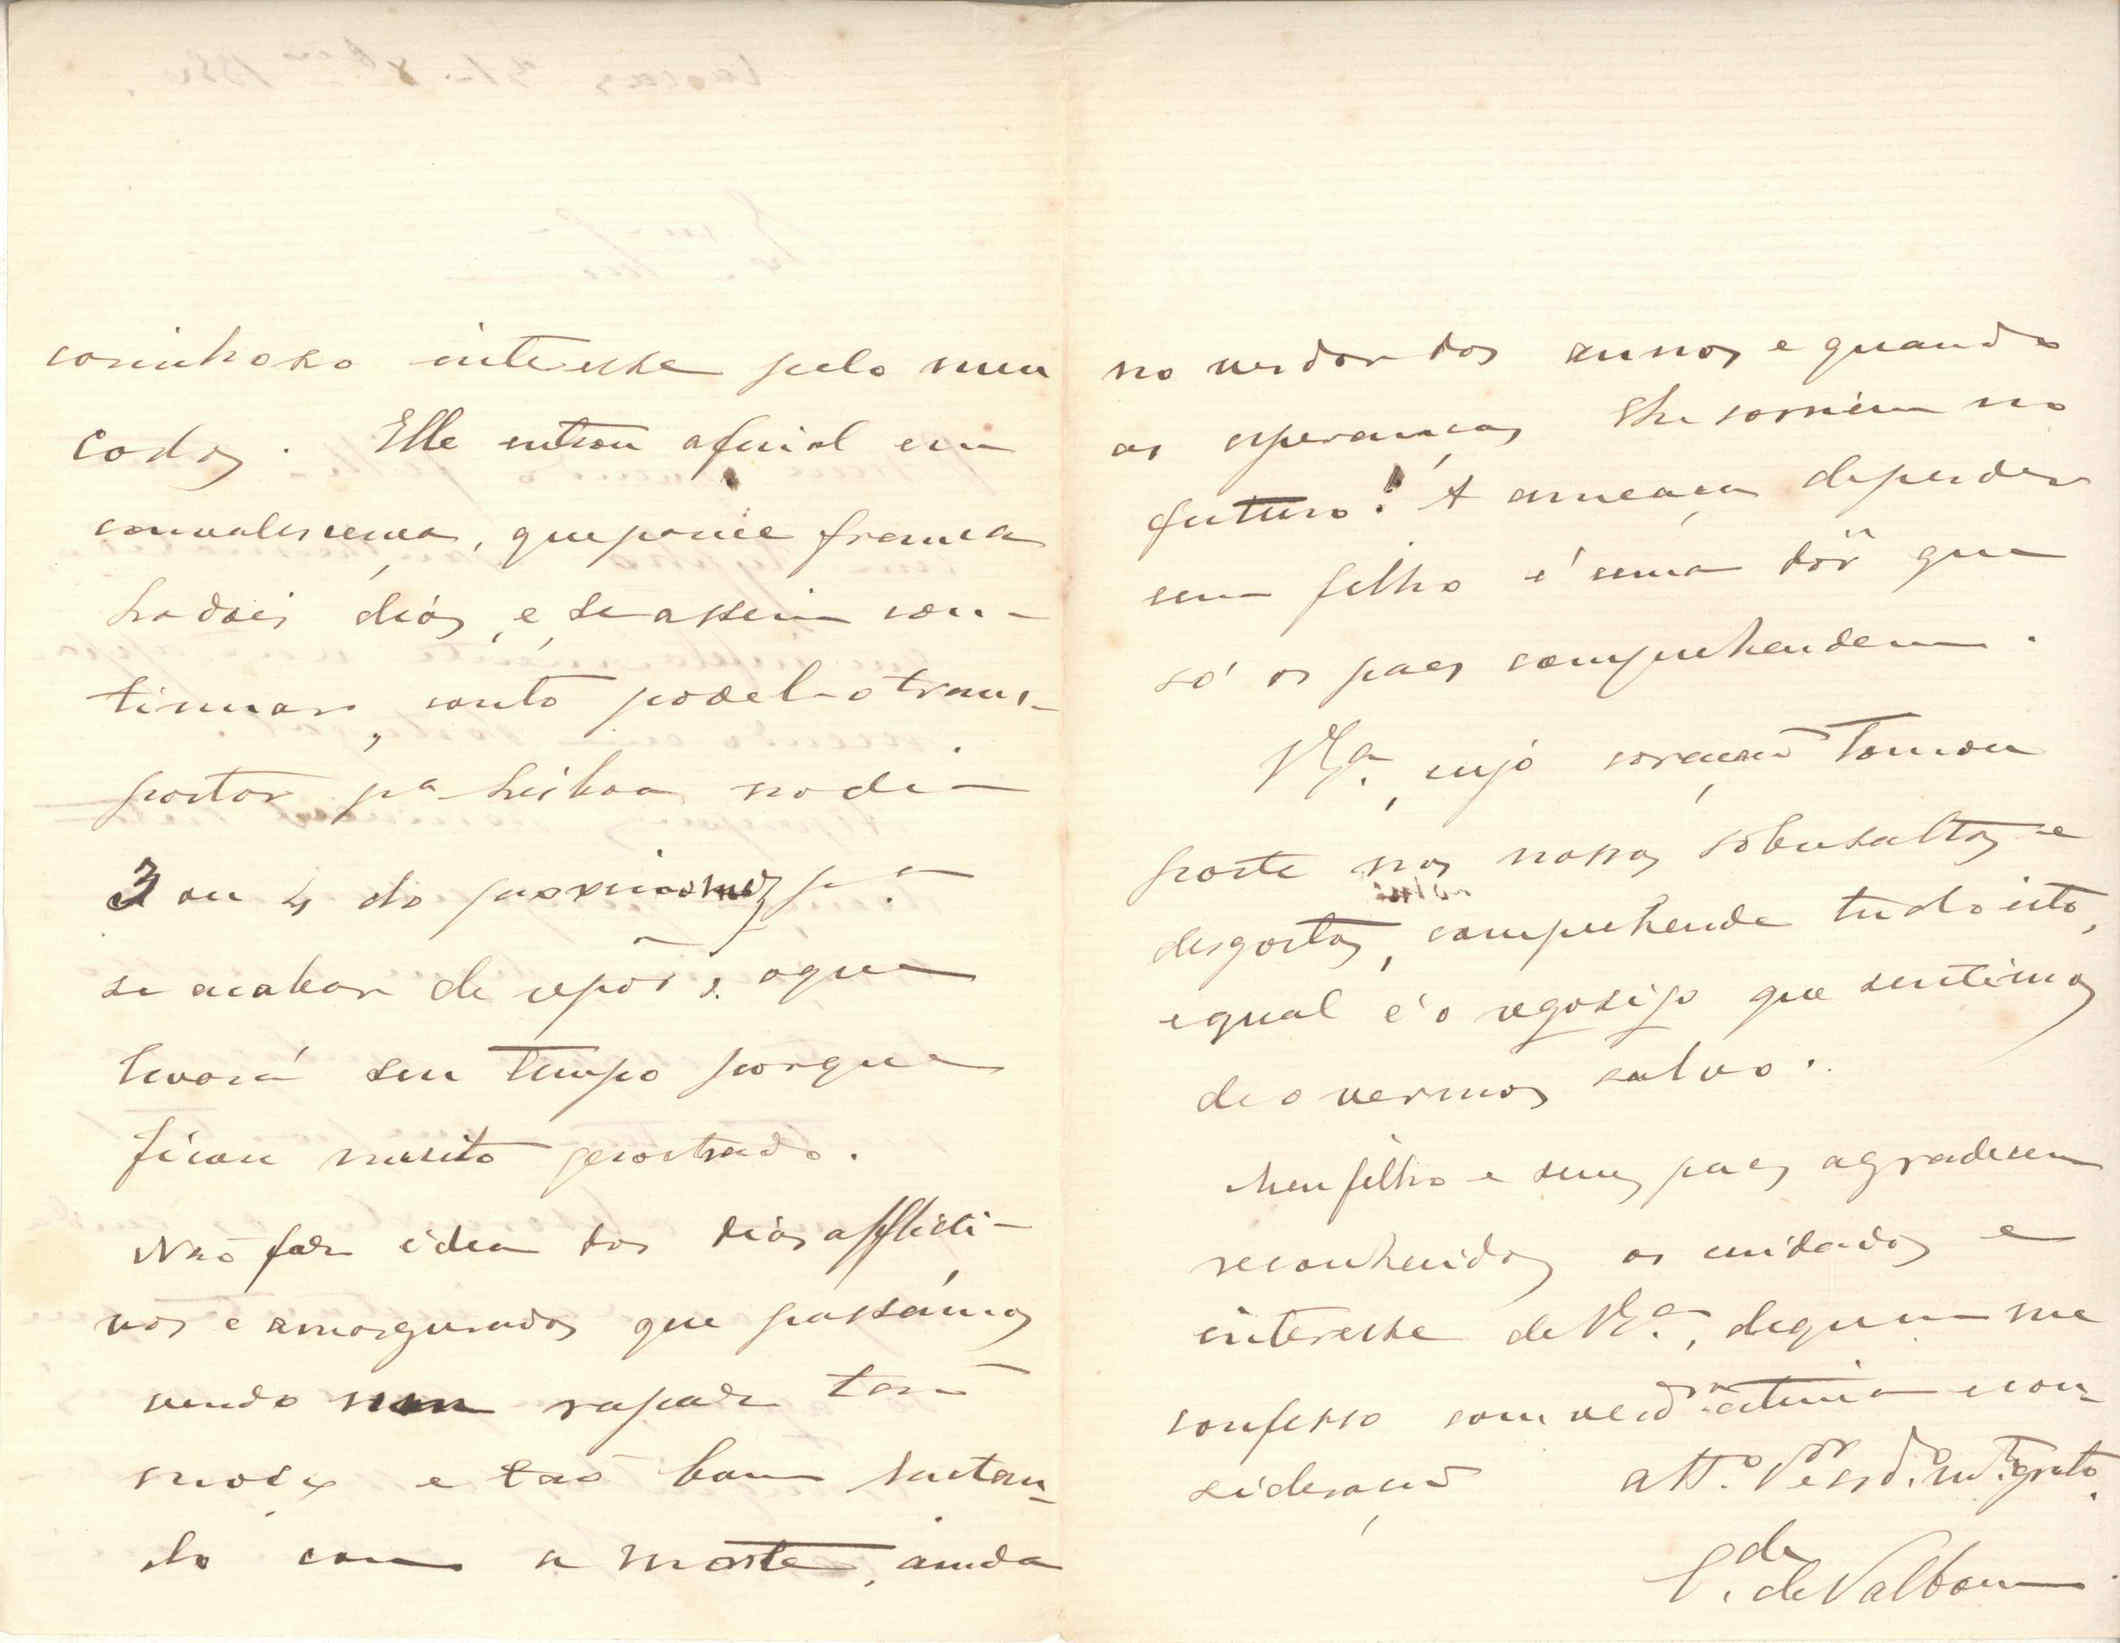 carinhoso interesse pelo meu
Carlos. Elle entrou afinal em
convalescença, que parece franca
ha dois dias, e, se assim con-
tinuar, conto podel-o trans-
portar pª Lisboa no dia
3 ou 4 do proximo mez pª
se acabar de repôr; o que
levará seu tempo porque
ficou muito prostrado.
Não faz idea dos dias afflicti-
vos e amargurados que passámos
vendo um rapaz tão
e tão bom luctan-
do com a morte, ainda
no verdor dos annos e quando
as esperanças lhe sorriem no
futuro! A ameaça de perder
um filho é uma dôr que
só os paes comprehendem.
V. Exª, cujo coração tomou
parte nos nossos sobresaltos e
desgostos, comprehende tudo isto,
e qual é o regosijo que sentimos
de o vermos salvo.
Meu filho e seus paes agradecem
reconhecidos os cuidados e
interesse de V. Exª, de quem me
confesso com verdrª estima e con-
sideração attº Vºr e grato
C.de de Valbom